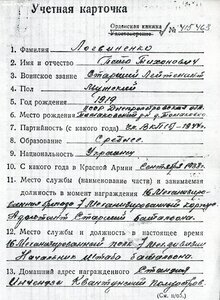 Учетная карточка
Орденская книжка
№ 415463
1. Фамилия Логвиненко
2. Имя и отчество Петр Тихонович
3. Воинское звание Старший Лейтенант
4. Пол Мужской
5. Год рождения 1919
6. Место рождения
7. Партийность (с какого года)
8. Образование Среднее
9. Национальность Украинец
10. С какого года в Красной Армии Сентября
11. Место службы (наименование части) и занимаемая
должность в момент награждения 16 Механизиро-
7 Механизированного корпуса
Адъютант Старший батальона.
12. Место службы и должность в настоящее время
16 Механизированный полк
Начальник штаба батальона.
13. Домашний адрес награжденного
Квантунский полуостров
(См. н/об.)